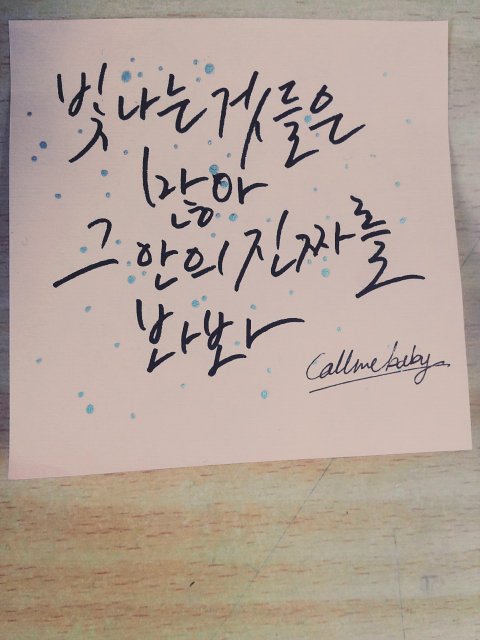 빛나는것들은
많아
그 안의 진짜를
봐봐
Callmebaby